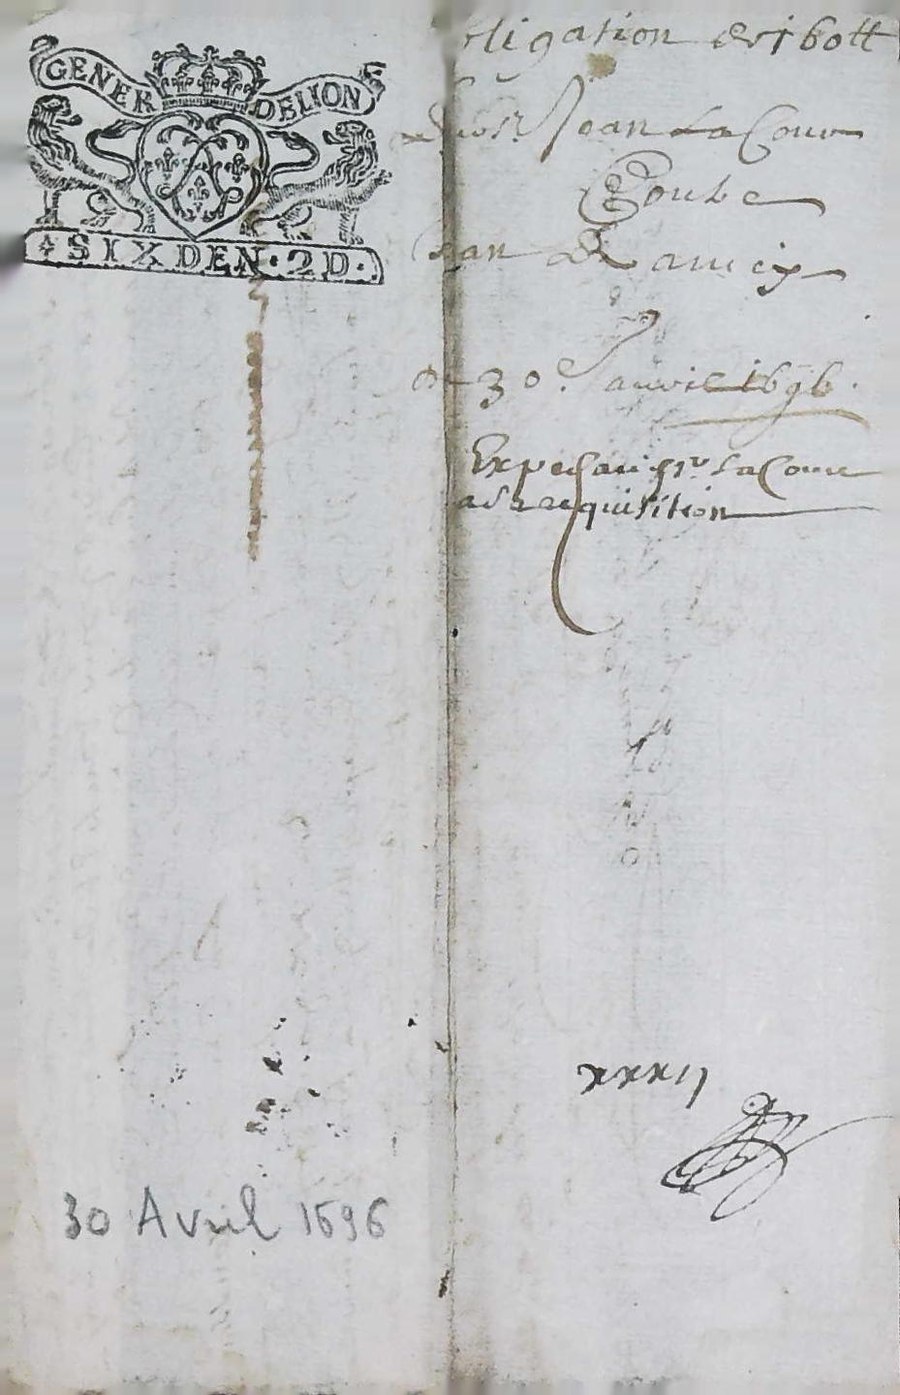 GENER DELION
SIX DEN. 2 D.
ligation de 160 ₶
Jean La Cour
Contre
Jean
30e. avril 1696.
Exped au sr. La Cour
a sa requisition
xxxij
30 Avril 1696